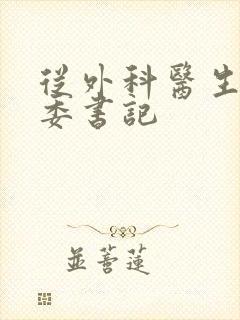 從外科醫生
委書記
並蒂蓮